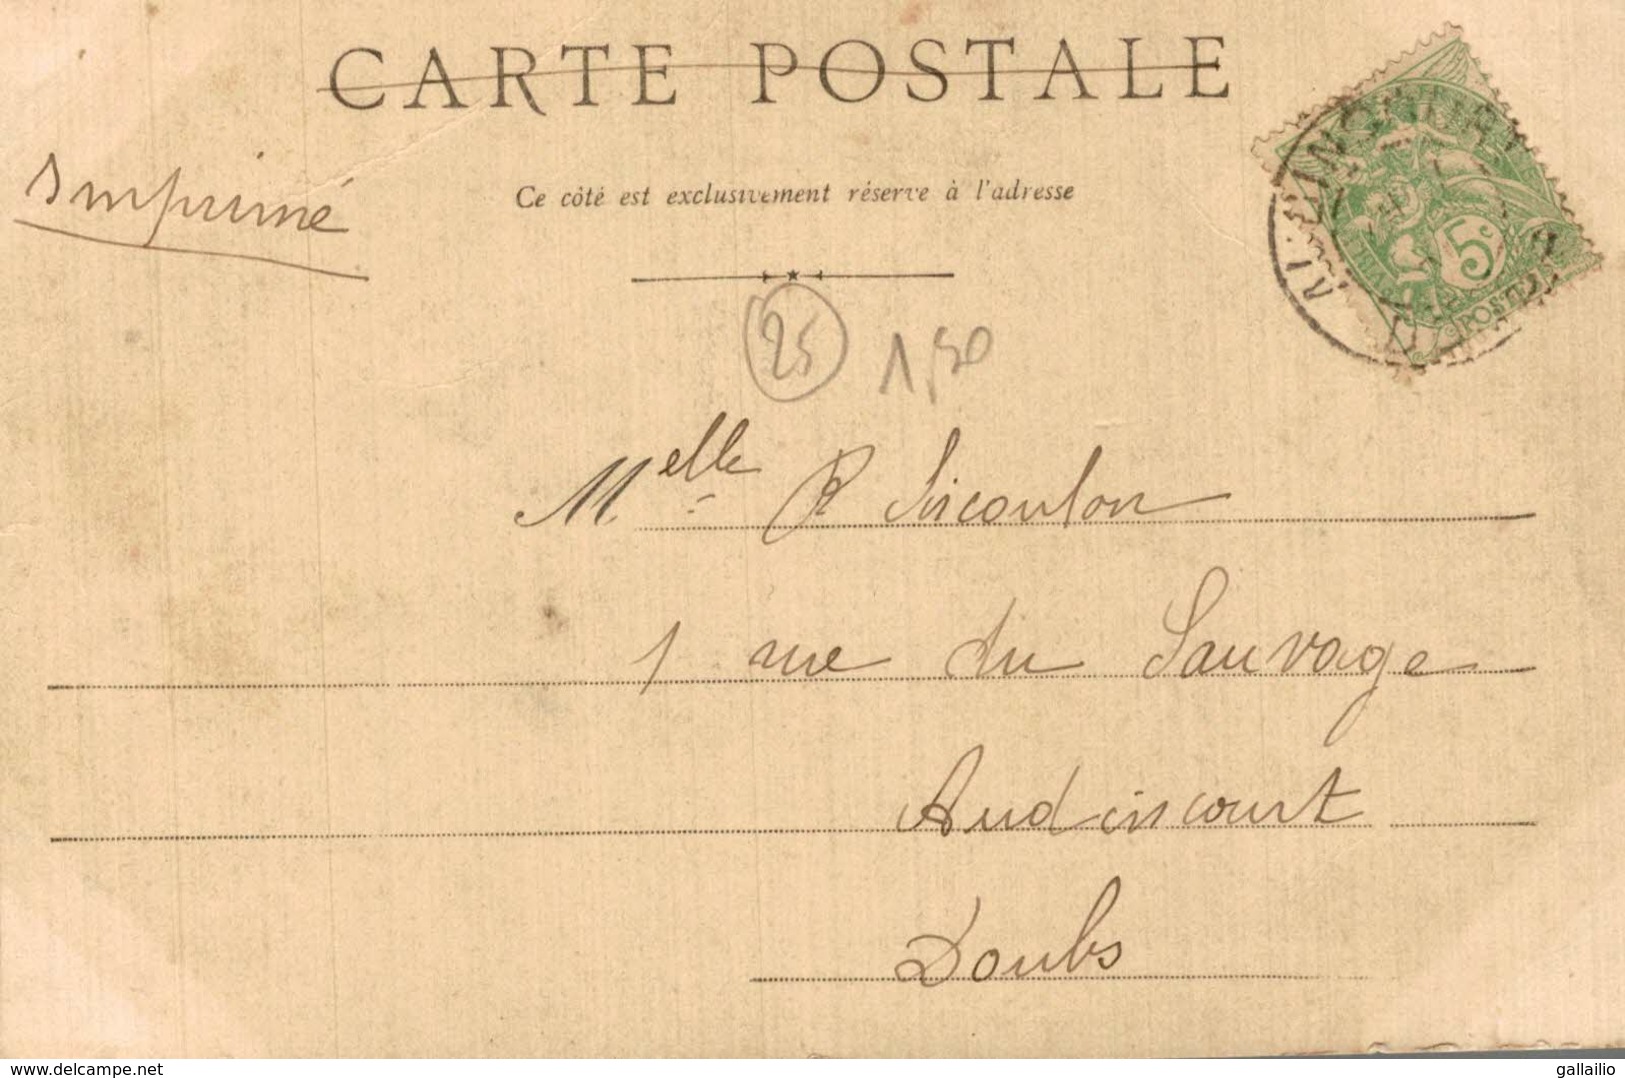 CARTE POSTALE
Imprimé
Ce côté est exclusivement réservé à l'adresse
25
1,50
5c
POSTES
Melle R Sircoulon
1 rue du Sauvage
Audincourt
Doubs
delcampe.net
gallailio